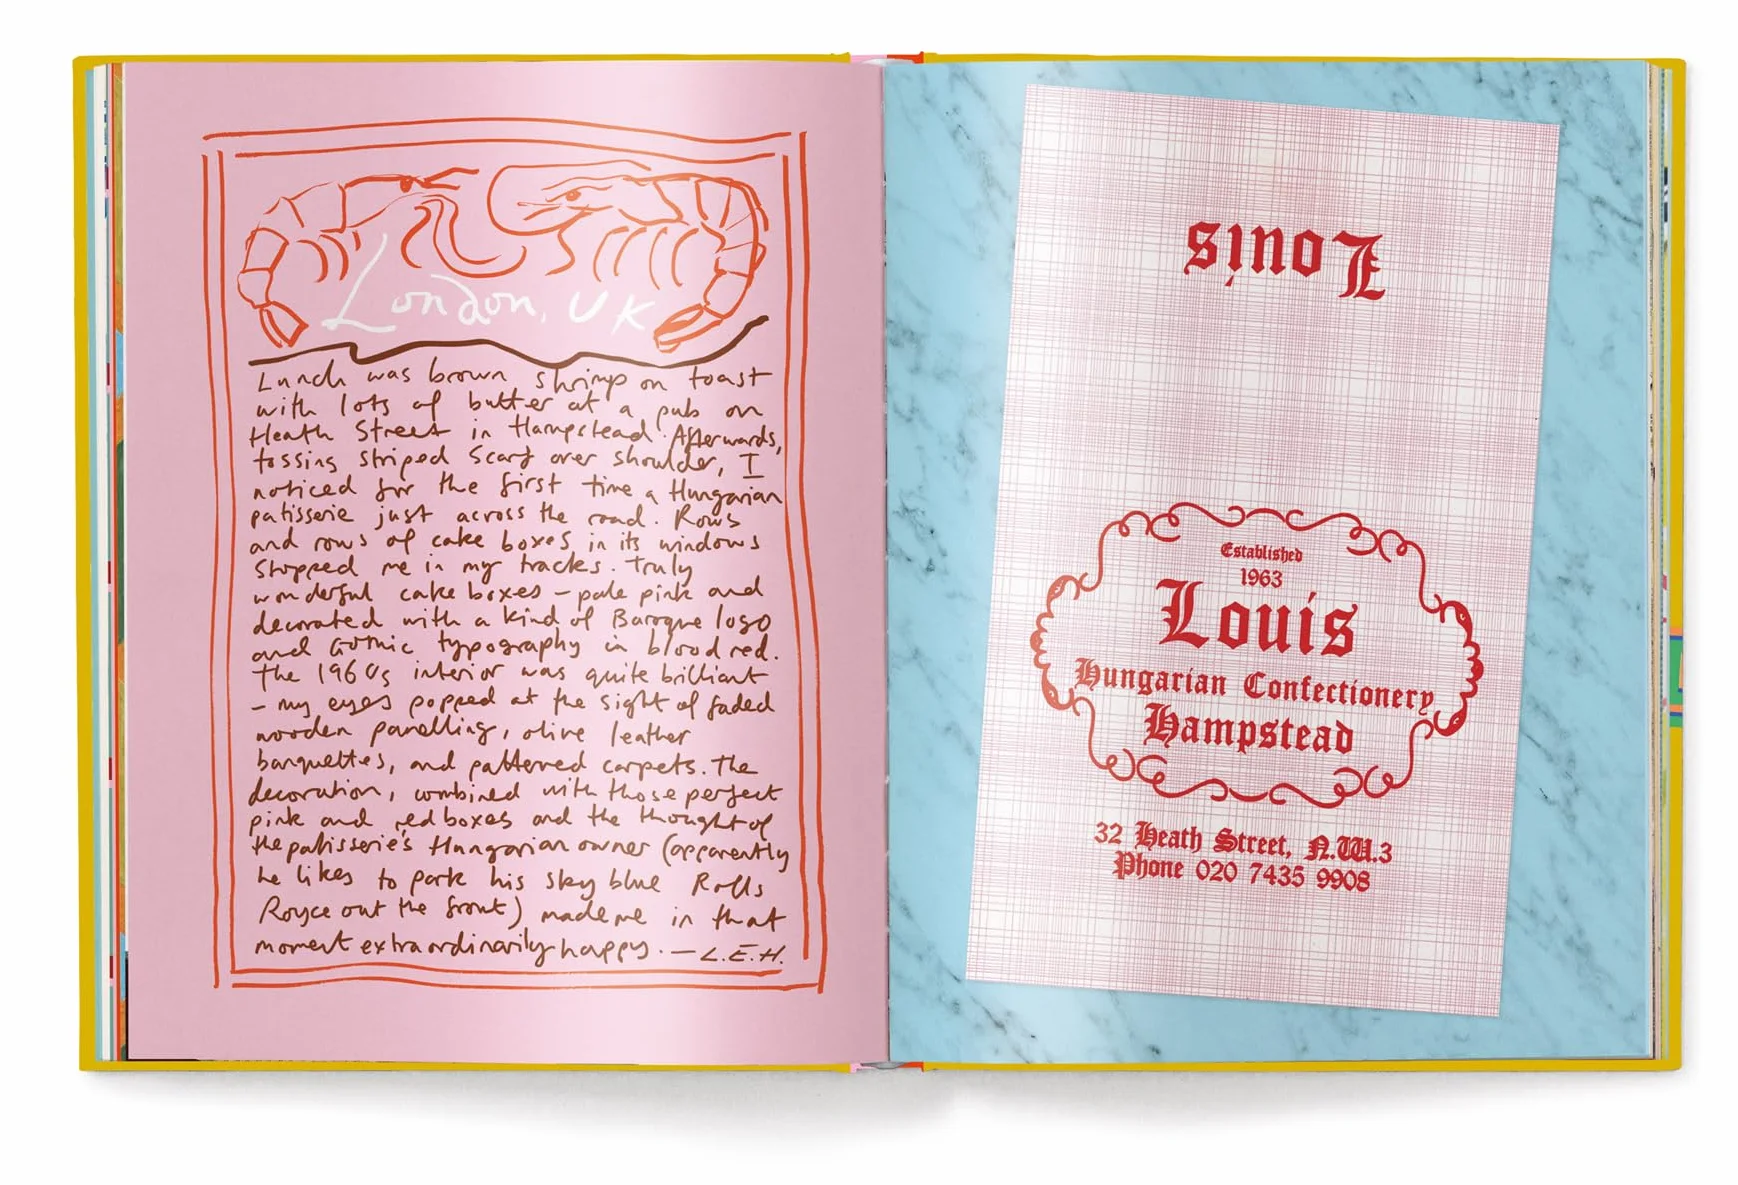 London, UK
Lunch was brown shrimp on toast
with lots of butter at a pub on
Heath Street in Hampstead. Afterwards,
tossing striped scarf over shoulder, I
noticed for the first time a Hungarian
patisserie just across the road. Rows
and rows of cake boxes in its windows
stopped me in my tracks. Truly
wonderful cake boxes – pale pink and
decorated with a kind of Baroque logo
and Gothic typography in blood red.
The 1960s interior was quite brilliant
– my eyes popped at the sight of faded
wooden panelling, olive leather
banquettes, and patterned carpets. The
decoration, combined with those perfect
pink and red boxes and the thought of
the patisserie's Hungarian owner (apparently
he likes to park his sky blue Rolls
Royce out the front) made me in that
moment extraordinarily happy. — L.E.H.
Louis
Established
1963
Louis
Hungarian Confectionery
Hampstead
32 Heath Street, N.W.3
Phone 020 7435 9908